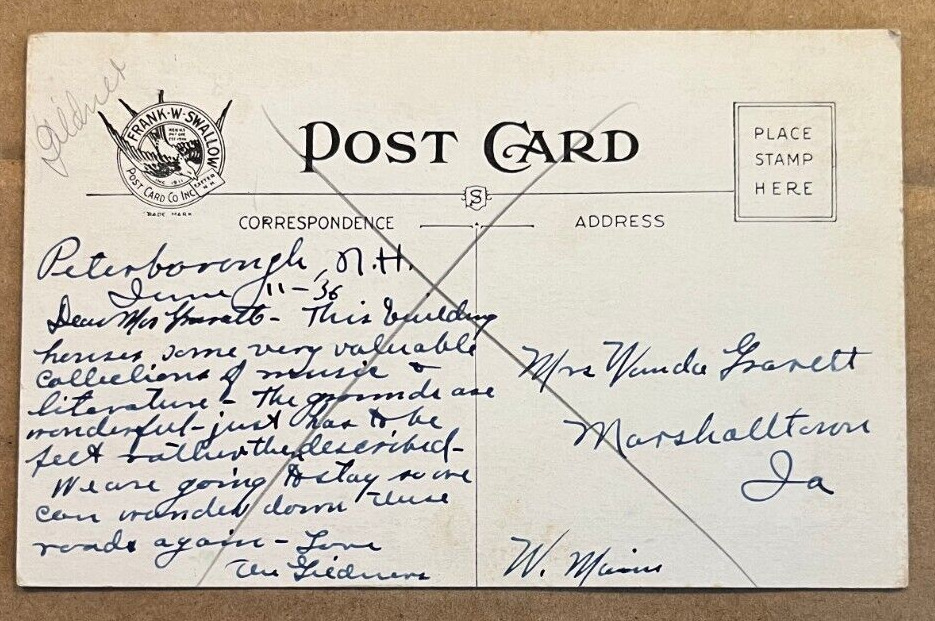 Gildner
FRANK·W·SWALLOW
POST CARD CO INC
INC 1911
EXETER N.H.
TRADE MARK
POST CARD
PLACE
STAMP
HERE
S
CORRESPONDENCE
ADDRESS
Peterborough, N.H.
June 11-36
Dear Mrs Gravett - This building
houses some very valuable
collections of music &
literature - The grounds are
wonderful - just has to be
felt rather the described -
We are going to stay so we
can wander down these
roads again - Love
The Gildners
Mrs Wanda Gravett
Marshalltown
Ia
W. Main